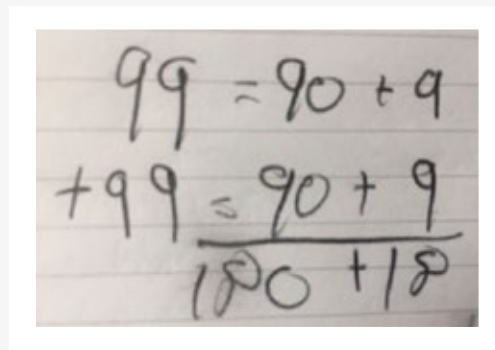 99 = 90 + 9
+99 = 90 + 9
180 + 18